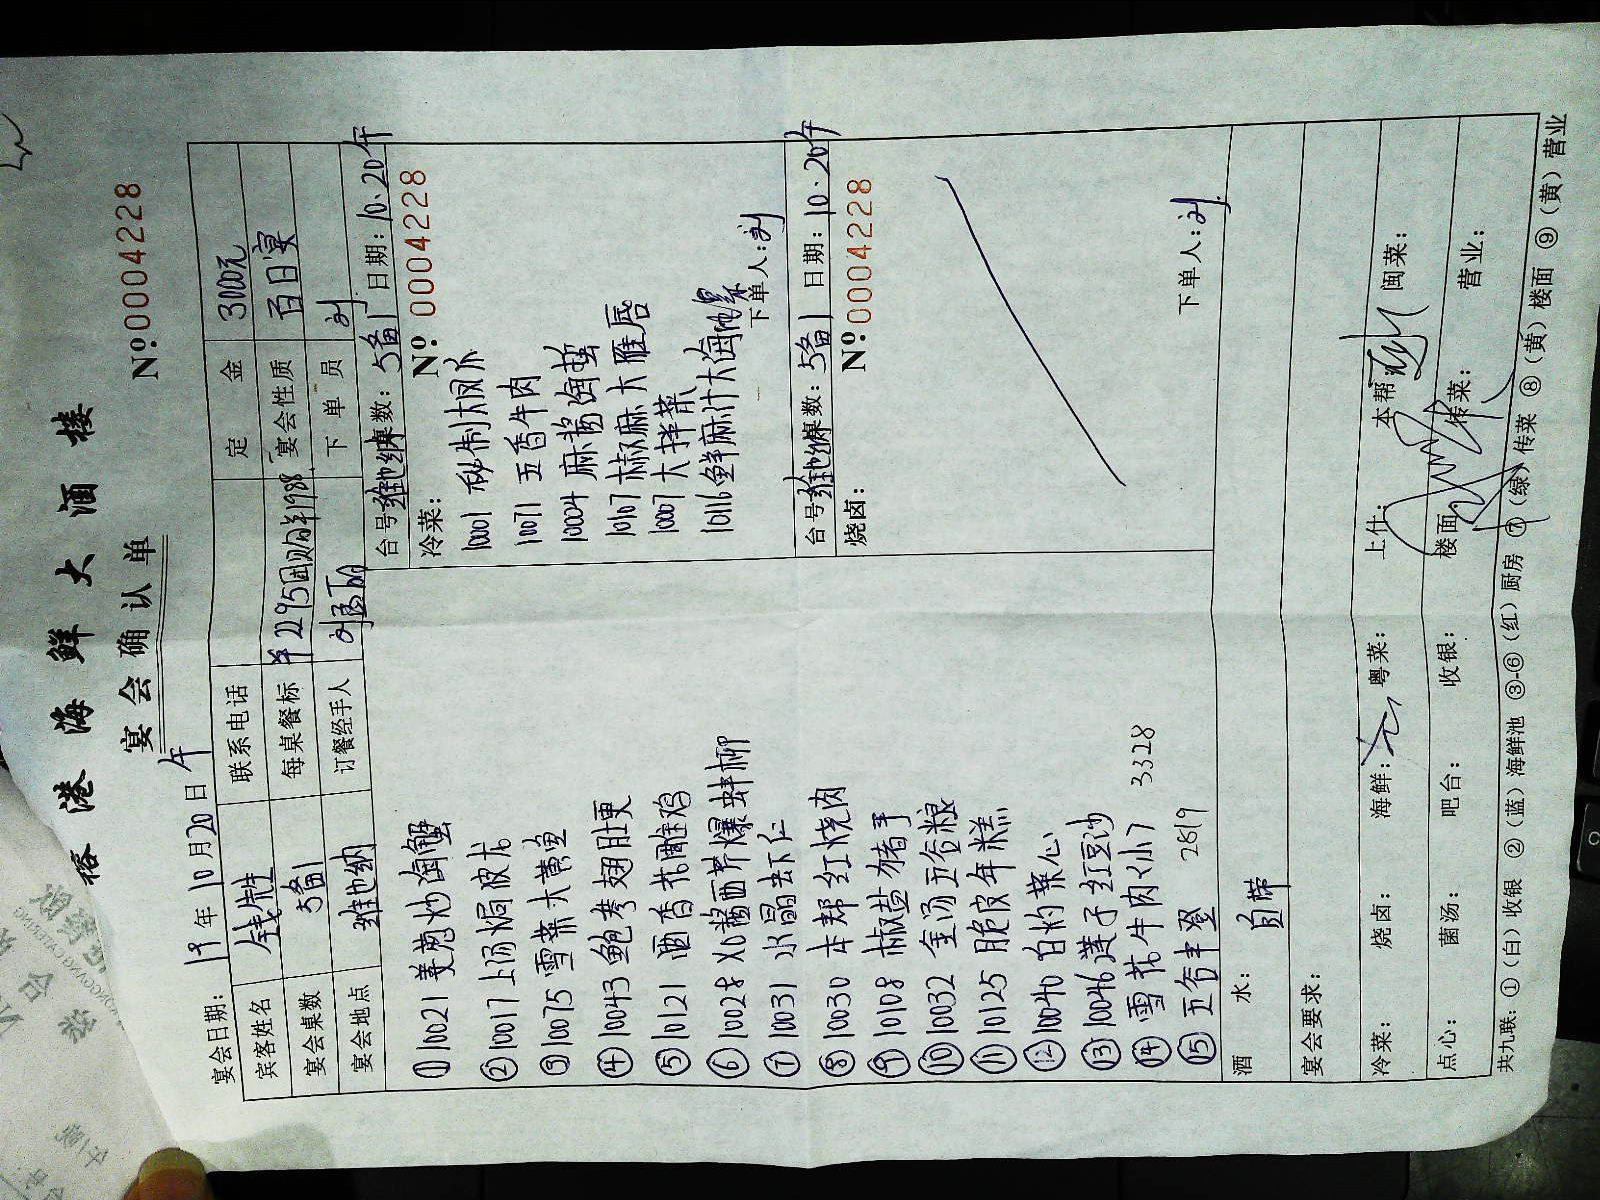 榕港海鲜大酒楼
宴会确认单
Nº:0004228
宴会日期: 19年10月20日午
宾客姓名 钱先生 联系电话 定金 3000元
宴会桌数 5备1 每桌餐标 ¥2295团购单1988 宴会性质 百日宴
宴会地点 维也纳 订餐经手人 下单员 刘
①10021 姜葱炒海蟹
②10017 上汤焗波龙
③10075 雪菜大黄鱼
④10043 鲍参翅肚更
⑤10121 酒香花雕鸡
⑥10028 XO酱西芹爆蚌柳
⑦10031 水晶虾仁
⑧10030 本帮红烧肉
⑨10108 椒盐猪手
⑩10032 金汤五谷粮
⑪10125 脆皮年糕
⑫10040 白灼菜心
⑬10046 莲子红豆沙
⑭ 雪花牛肉(小) 3328
⑮ 五谷丰登 2619
台号维也纳桌数: 5备1 日期: 10、20午
冷菜: Nº 0004228
10001 秘制大凤爪
10071 五香牛肉
10004 麻酱海蜇
10107 椒麻大雁唇
10007 大拌菜
10116 鲜麻汁大海螺
下单人: 刘
台号维也纳桌数: 5备1 日期: 10、20午
烧卤: Nº: 00004228
下单人: 刘
酒水: 自带
宴会要求:
冷菜: 烧卤: 海鲜: 粤菜: 上什: 本帮 闽菜:
点心: 菌汤: 吧台: 收银: 楼面 传菜: 营业:
共九联: ①(白)收银 ②(蓝)海鲜池 ③-⑥(红)厨房 ⑦(绿)传菜 ⑧(黄)楼面 ⑨(黄)营业